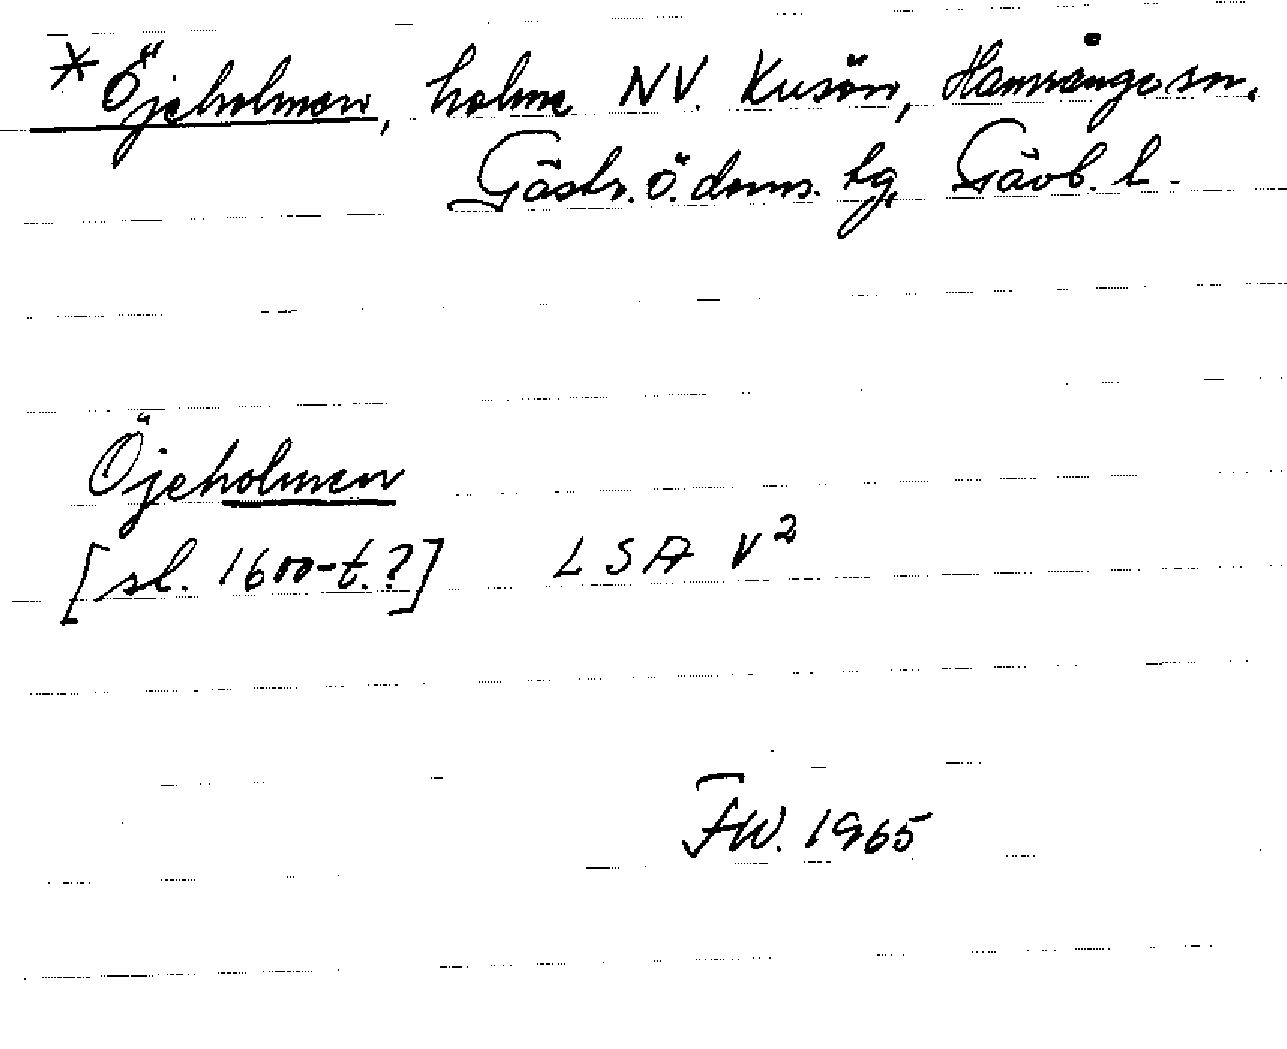 * Öjeholmen, holme NV. Kusön, Hamrånge sn.
Gästr. ö. doms. tg, Gävb. l.
Öjeholmen
[sl. 1600-t.?] LSA V²
FW. 1965